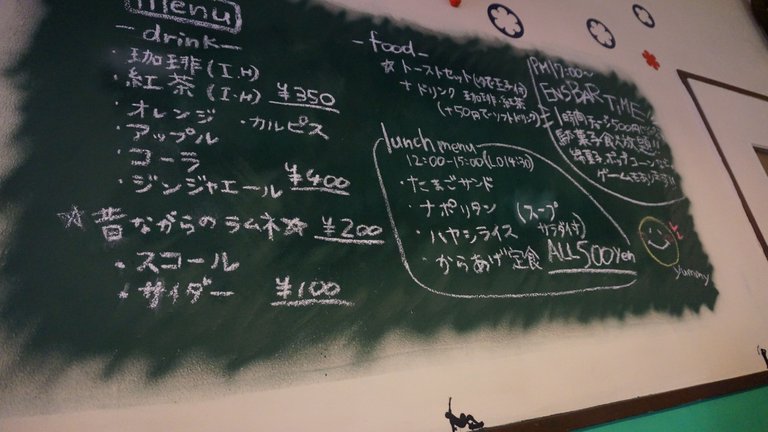 menu
-drink-
・珈琲(I.H)
・紅茶(I.H) ¥350
・オレンジ ・カルピス
・アップル
・コーラ
・ジンジャエール ¥400
☆昔ながらのラムネ☆ ¥200
・スコール
・サイダー ¥100
-food-
☆トーストセット(ゆで玉子付)
+ドリンク 珈琲・紅茶
(+50円でソフトドリンク)
lunch menu
12:00-15:00(LO14:30)
・たまごサンド
・ナポリタン (スープ
・ハヤシライス サラダ付)
・からあげ定食 ALL 500yen
PM17:00~
ENSBAR TiME!!
1時間チャージ500円
駄菓子食べ放題!!
駄菓子、ポップコーン
ゲームもあります!!
yummy